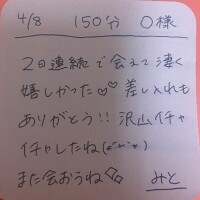 4/8 150分 O様
2日連続で会えて凄く
嬉しかった♡♡差し入れも
ありがとう!!沢山イチャ
イチャしたね
また会おうね みと